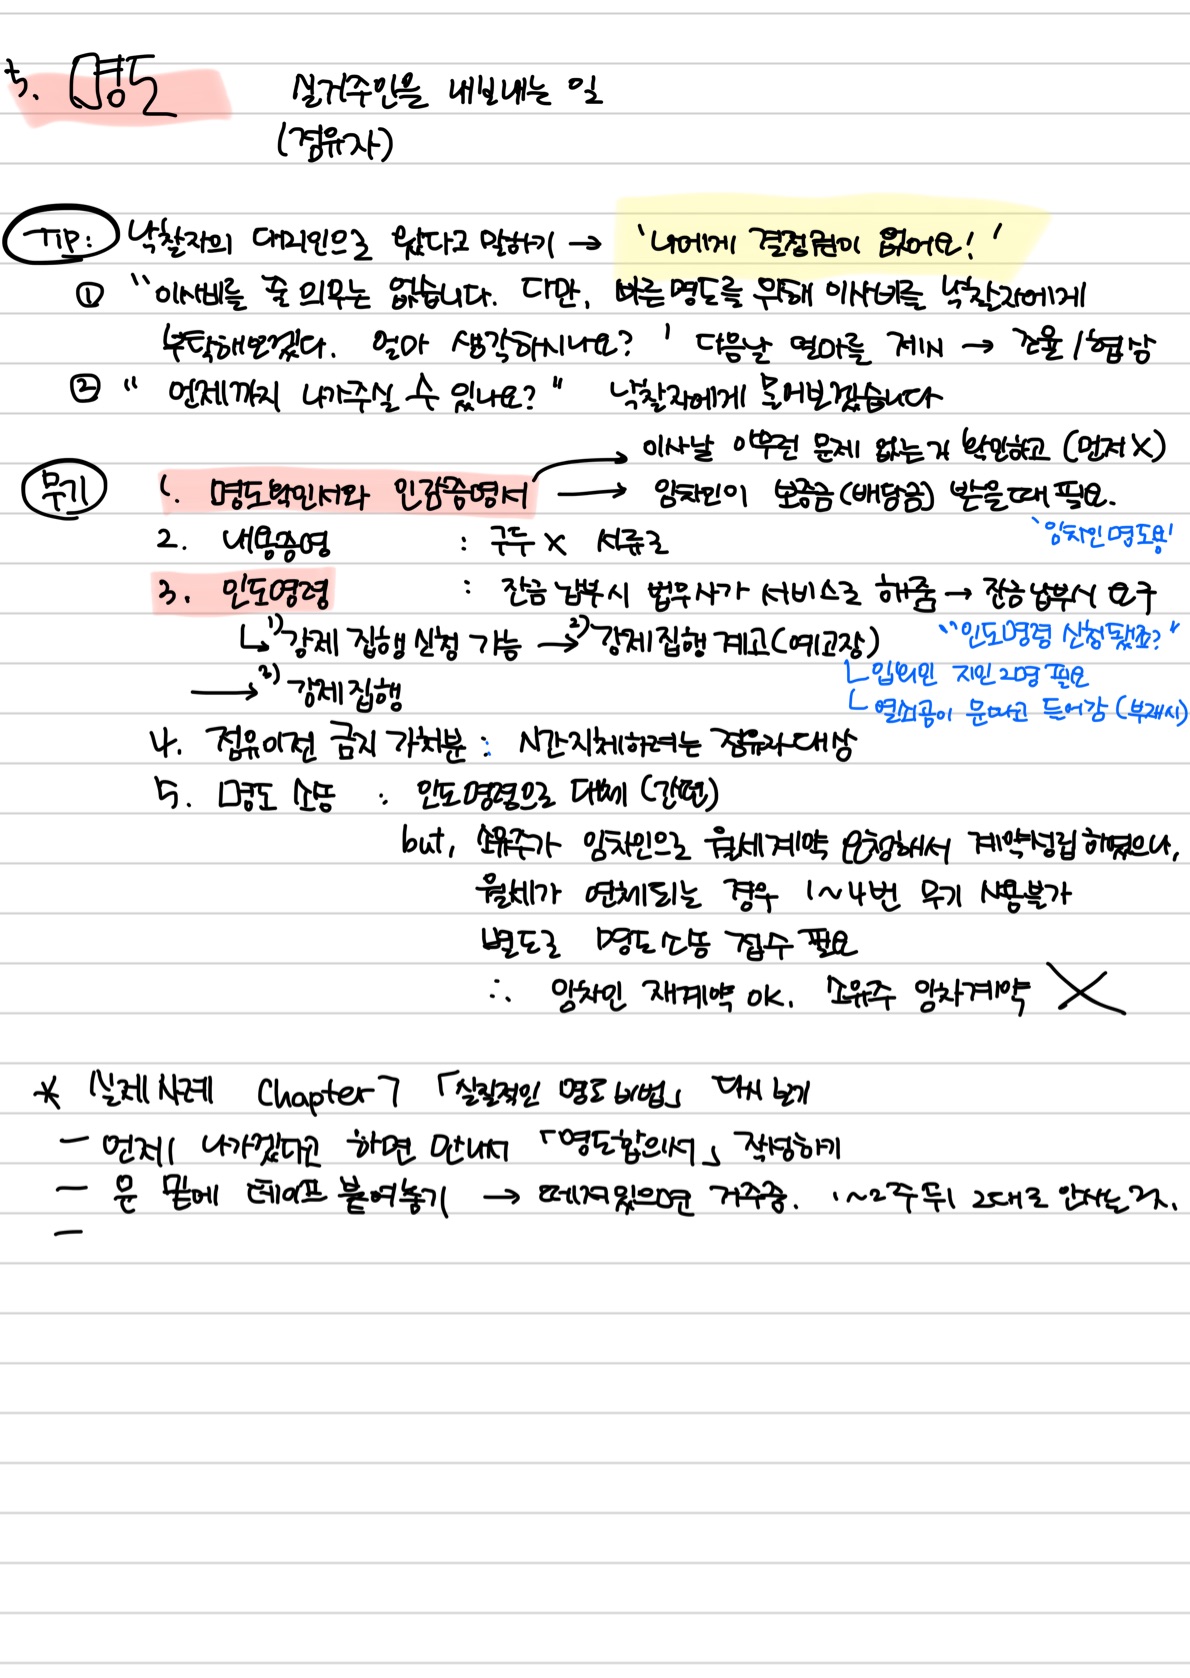 5. 명도 실거주인을 내보내는 일
(점유자)
TIP: 낙찰자의 대리인으로 왔다고 말하기 → '나에게 결정권이 없어요!'
① "이사비를 줄 의무는 없습니다. 다만, 빠른명도를 위해 이사비를 낙찰자에게
부탁해보겠다. 얼마 생각하시나요?' 다음날 얼마를 제시 → 조율/협상
② "언제까지 나가주실 수 있나요?" 낙찰자에게 물어보겠습니다
→ 이사날 아무런 문제 없는거 확인하고 (먼저X)
무기 1. 명도확인서와 인감증명서 → 임차인이 보증금(배당금) 받을때 필요.
'임차인명도용'
2. 내용증명 : 구두X 서류로
3. 인도명령 : 잔금 납부시 법무사가 서비스로 해줌 → 잔금납부시 요구
↳ 1) 강제집행신청 가능 → 2) 강제집행 계고(예고장)
"인도명령 신청됐죠?"
→ 3) 강제집행
└ 입회인 지인2명 필요
└ 열쇠공이 문따고 들어감 (부재시)
4. 점유이전 금지 가처분 : 시간지체하려는 점유자대상
5. 명도 소송 : 인도명령으로 대체 (간편)
but, 소유주가 임차인으로 월세계약 요청해서 계약성립하였으나,
월세가 연체되는 경우 1~4번 무기 사용불가
별도로 명도소송 접수 필요
∴ 임차인 재계약 OK. 소유주 임차계약 X
* 실제사례 Chapter 7 「실질적인 명도 비법」 다시 보기
- 먼저 나가겠다고 하면 만나서 「명도합의서」 작성하기
- 문 밑에 테이프 붙여놓기 → 떼져있으면 거주중. 1~2주 뒤 그대로 안사는 것.
-